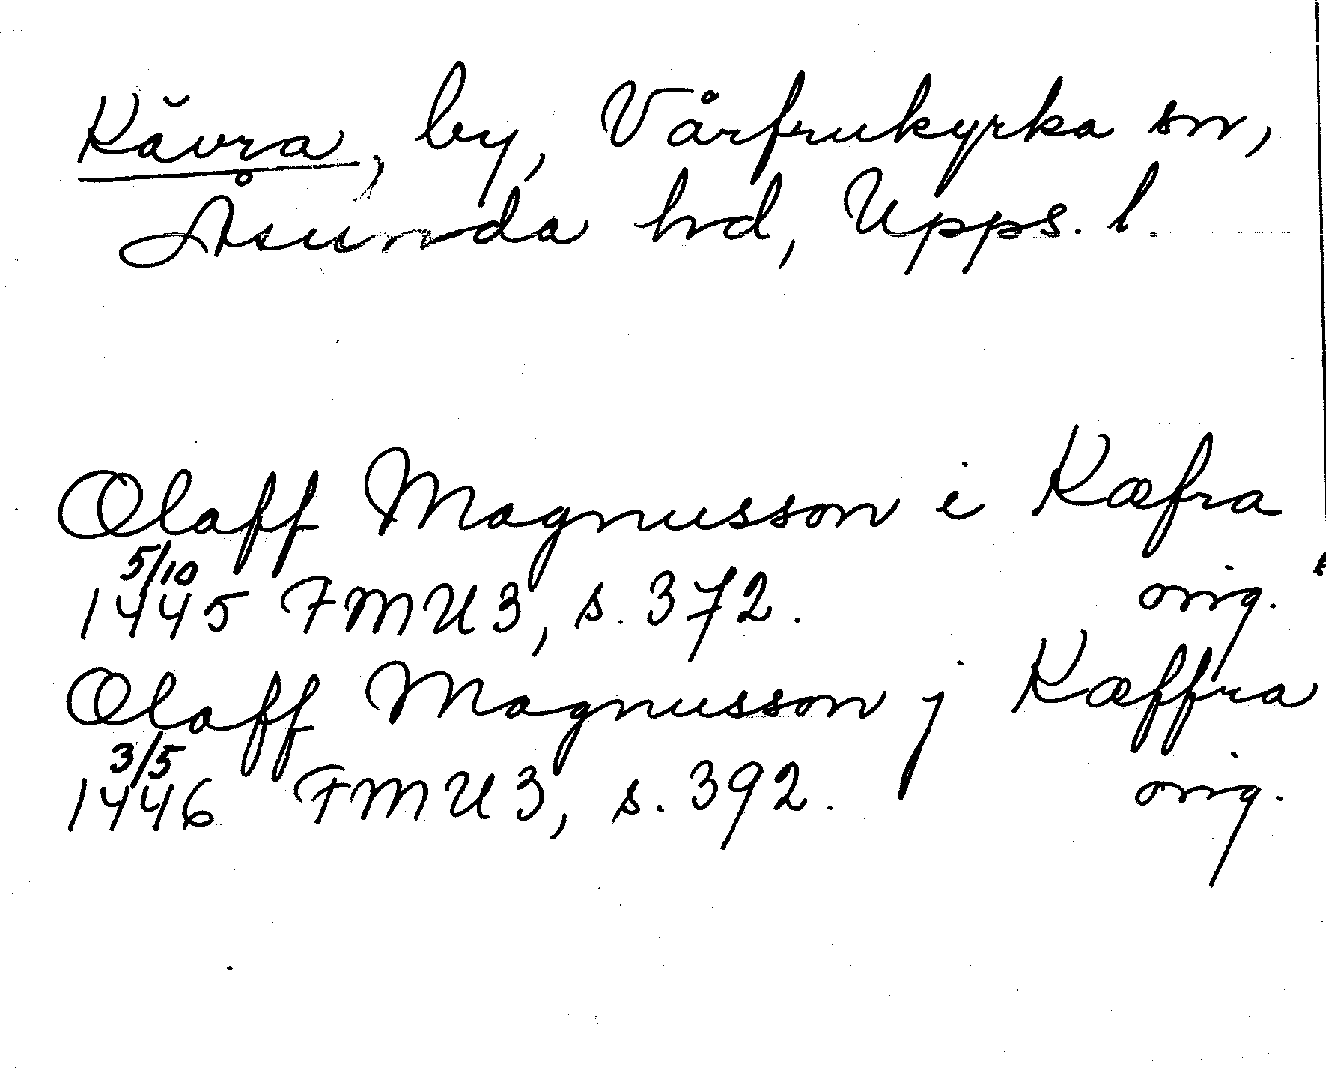 Kävra, by, Vårfrukyrka sn,
Åsunda hd, Upps. l.
Olaff Magnusson i Kæfra
5/10
1445 FMU 3, s. 372. orig.
Olaff Magnusson j Kæffra
3/5
1446 FMU 3, s. 392. orig.